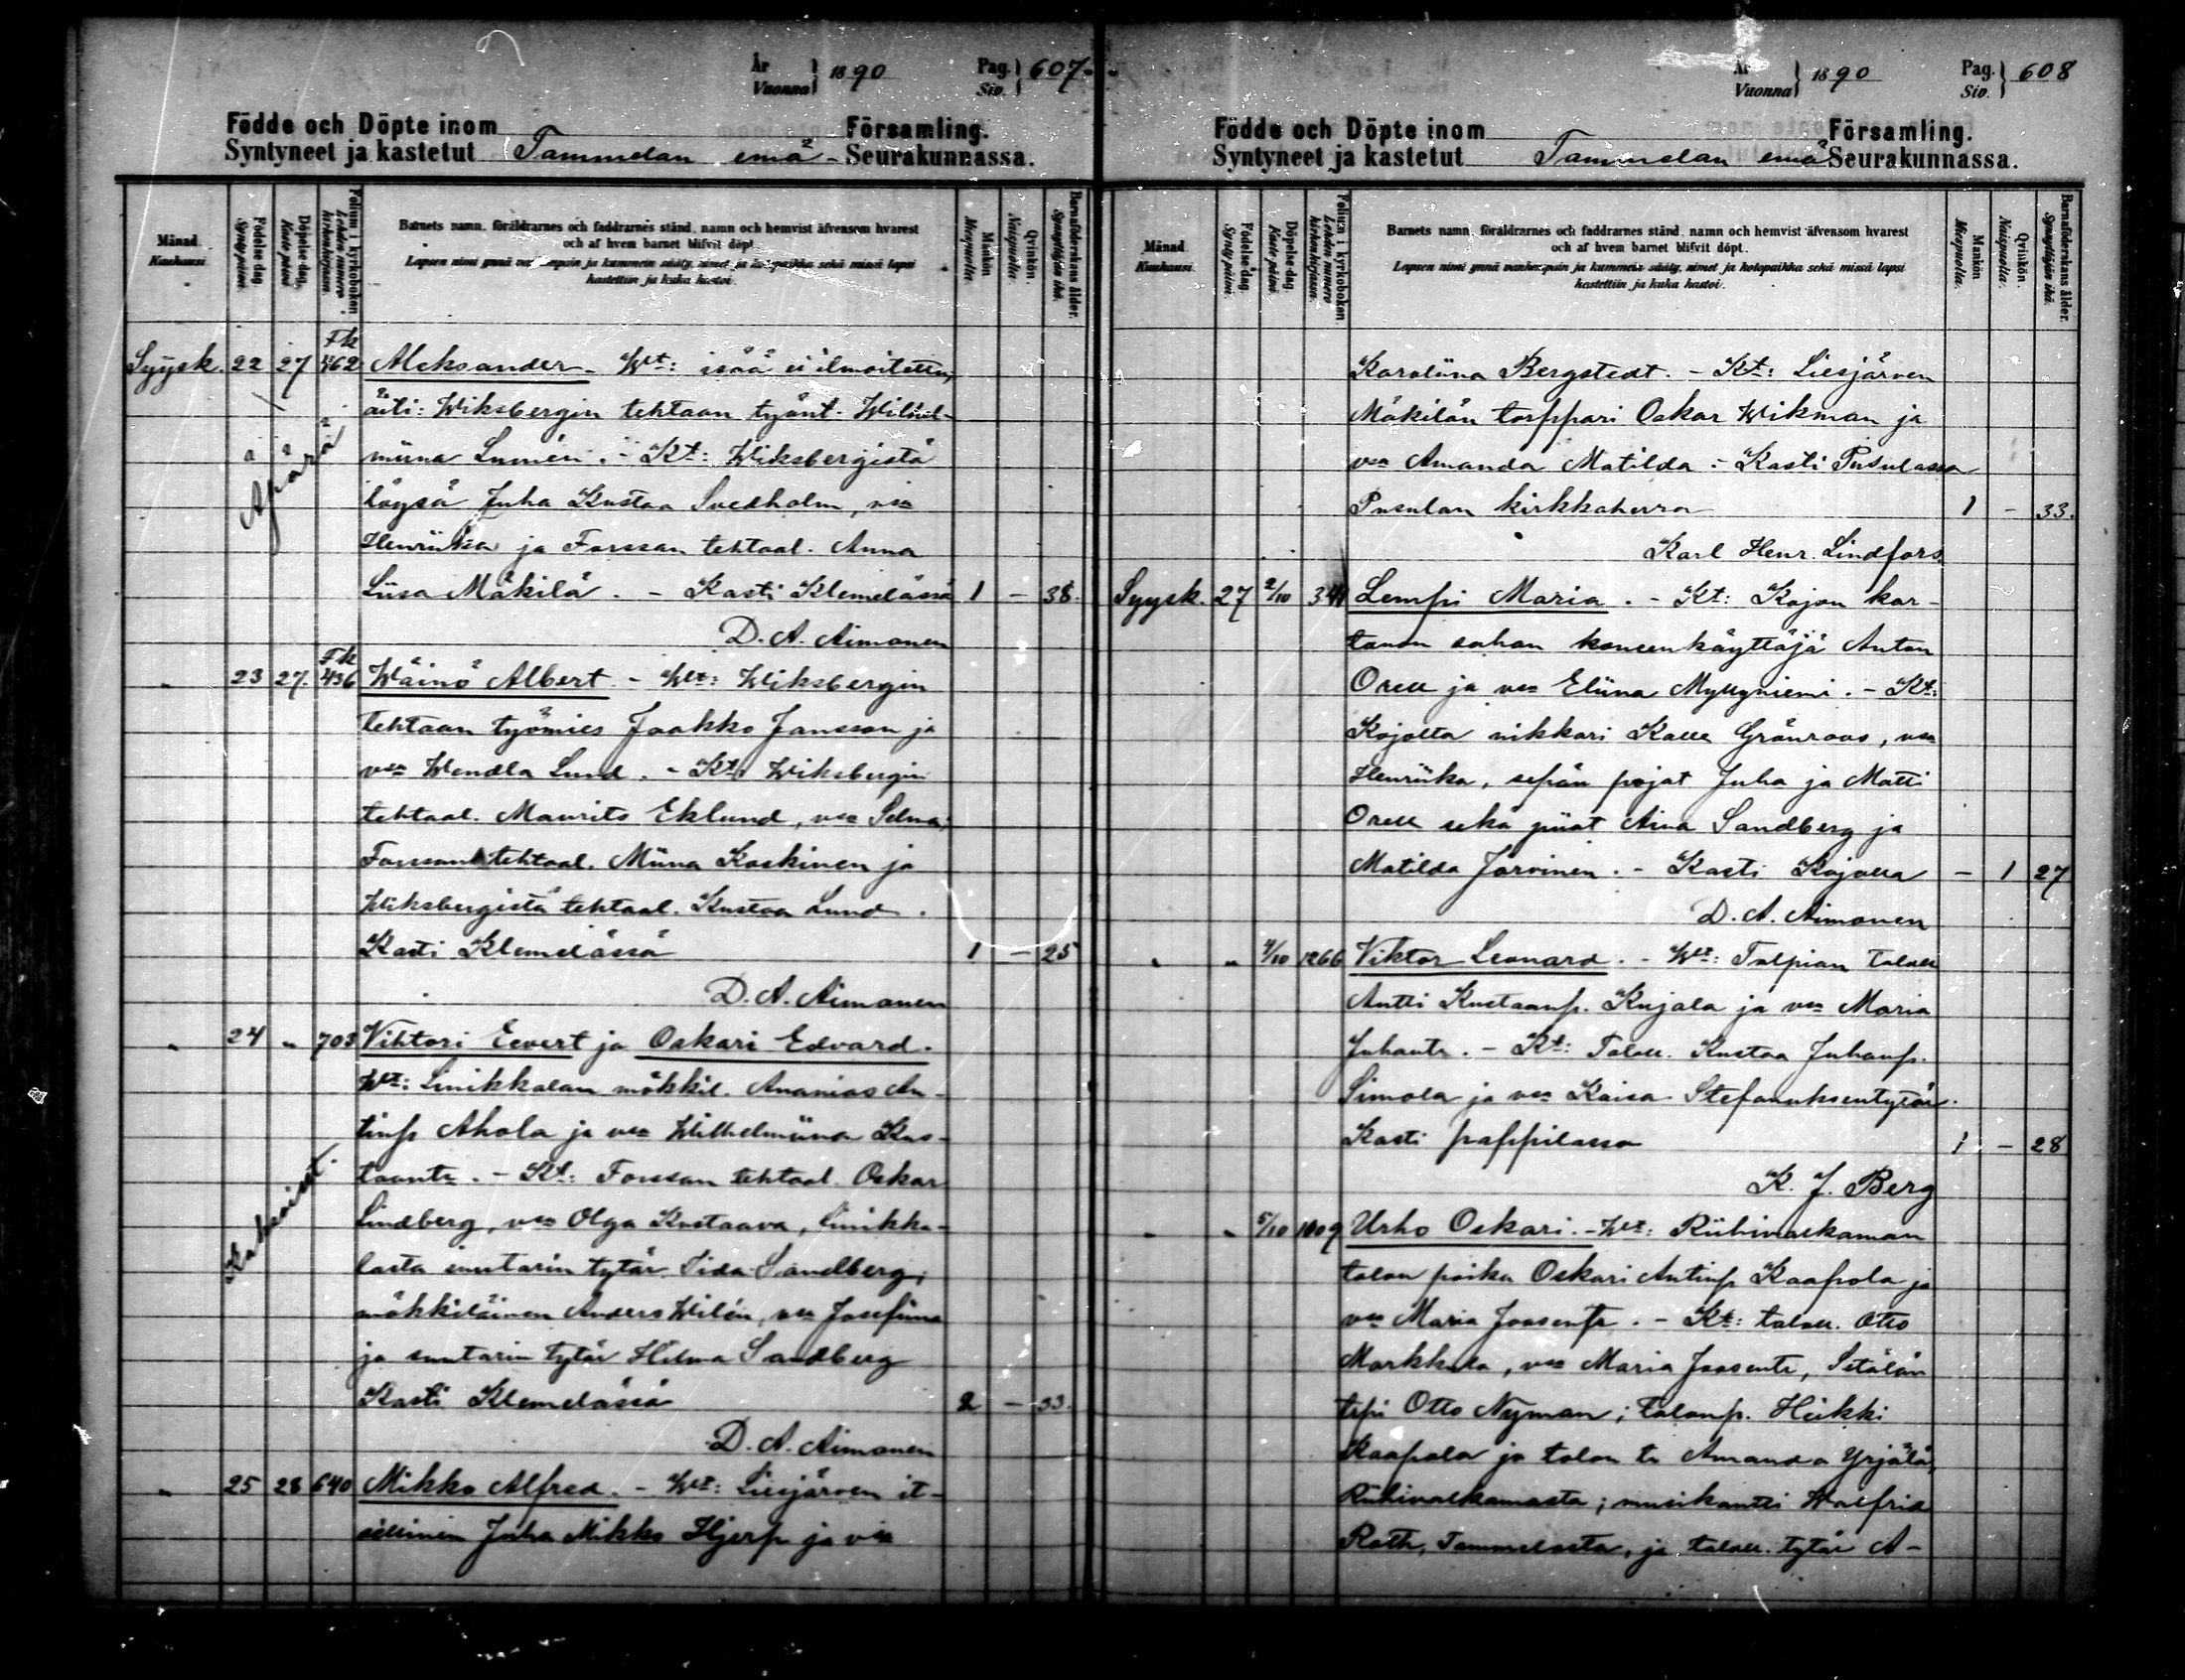 År Vuonna } 1890 Pag. Siv. } 607.
Födde och Döpte inom Församling.
Syntyneet ja kastetut Tammelan emä- Seurakunnassa.
Månad. Kuukausi.
Födelse dag. Synty päivä.
Döpelse dag. Kaste päivä.
Folium i kyrkoboken. Lehden numero kirkonkirjassa.
Barnets namn, föräldrarnes och faddrarnes stånd, namn och hemvist äfvensom hvarest
och af hvem barnet blifvit döpt.
Lapsen nimi ynnä vanhempain ja kummein sääty, nimet ja kotopaikka sekä missä lapsi
kastettiin ja kuka kastoi.
Mankön. Miespuolta.
Qvinkön. Naispuolta.
Barnaföderskans ålder. Synnyttäjän ikä.
Syysk. 22 27 Fk 462 Aleksander. - Wt: isää ei ilmoitettu,
äiti: Wiksbergin tehtaan työnt. Wilhel-
miina Lumén. - Kt: Wiksbergistä
Äpärä
löysä Juha Kustaa Svedholm, vsa
Henriika ja Forssan tehtaal. Anna
Liisa Mäkilä. - Kasti Klemelässä 1 - 38.
D. A. Aimonen
" 23 27. Fk 436 Wäinö Albert - Wt: Wiksbergin
tehtaan työmies Jaakko Jansson ja
vsa Wendla Lund. - Kt: Wiksbergin
tehtaal. Maurits Eklund, vsa Selma;
Forssan tehtaal. Miina Koskinen ja
Wiksbergistä tehtaal. Kustaa Lund.
Kasti Klemelässä 1 - 25
D. A. Aimonen
" 24 " 703 Vihtori Eevert ja Oskari Edvard.
Wt: Linikkalan mökkil. Ananias An-
tinp. Ahola ja vsa Wilhelmiina Kus-
taantr. - Kt: Forssan tehtaal. Oskar
Kaksoiset.
Lindberg, vsa Olga Kustaava, Linikka-
lasta suutarin tytär Iida Sandberg;
mökkiläinen Anders Wilén, vsa Josefiina
ja suutarin tytär Hilma Sandberg
Kasti Klemelässä 2 - 33.
D. A. Aimonen
" 25 28 640 Mikko Alfred. - Wt: Liesjärven it-
sellinen Juha Mikko Hjerp ja vsa
År Vuonna } 1890 Pag. Siv. } 608
Födde och Döpte inom Församling.
Syntyneet ja kastetut Tammelan emä Seurakunnassa.
Månad. Kuukausi.
Födelse dag. Synty päivä.
Döpelse dag. Kaste päivä.
Folium i kyrkoboken. Lehden numero kirkonkirjassa.
Barnets namn, föräldrarnes och faddrarnes stånd, namn och hemvist äfvensom hvarest
och af hvem barnet blifvit döpt.
Lapsen nimi ynnä vanhempain ja kummein sääty, nimet ja kotopaikka sekä missä lapsi
kastettiin ja kuka kastoi.
Mankön. Miespuolta.
Qvinkön. Naispuolta.
Barnaföderskans ålder. Synnyttäjän ikä.
Karoliina Bergstedt. - Kt: Liesjärven
Mäkilän torppari Oskar Wikman ja
vsa Amanda Matilda. - Kasti Pusulassa
Pusulan kirkkoherra 1 - 33.
Karl Henr. Lindfors.
Syysk. 27 2/10 341 Lempi Maria. - Kt: Kojon kar-
tanon sahan koneenkäyttäjä Anton
Orell ja vsa Eliina Myllyniemi. - Kt:
Kojolta nikkari Kalle Grönroos, vsa
Henriika, sepän pojat Juha ja Matti
Orell sekä piiat Aina Sandberg ja
Matilda Järvinen. - Kasti Kojolla - 1 27
D. A. Aimonen
" " 4/10 1266 Viktor Leonard. - Wt: Talpian talou
Antti Kustaanp. Kujala ja vsa Maria
Juhantr. - Kt: Talou. Kustaa Juhanp.
Simola ja vsa Kaisa Stefanuksentytär.
Kasti pappilassa 1 - 28
K. J. Berg
" " 5/10 1009 Urho Oskari. - Wt: Riihivalkaman
talon poika Oskari Antinp Kaapola ja
vsa Maria Joosentr. - Kt: talou. Otto
Markkula, vsa Maria Joosentr, Setälän
trpi Otto Nyman; talonp. Heikki
Kaapola ja talon tr Amanda Yrjälä,
Riihivalkamasta; musikantti Walfrid
Roth, Tammelasta, ja talou. tytär A-